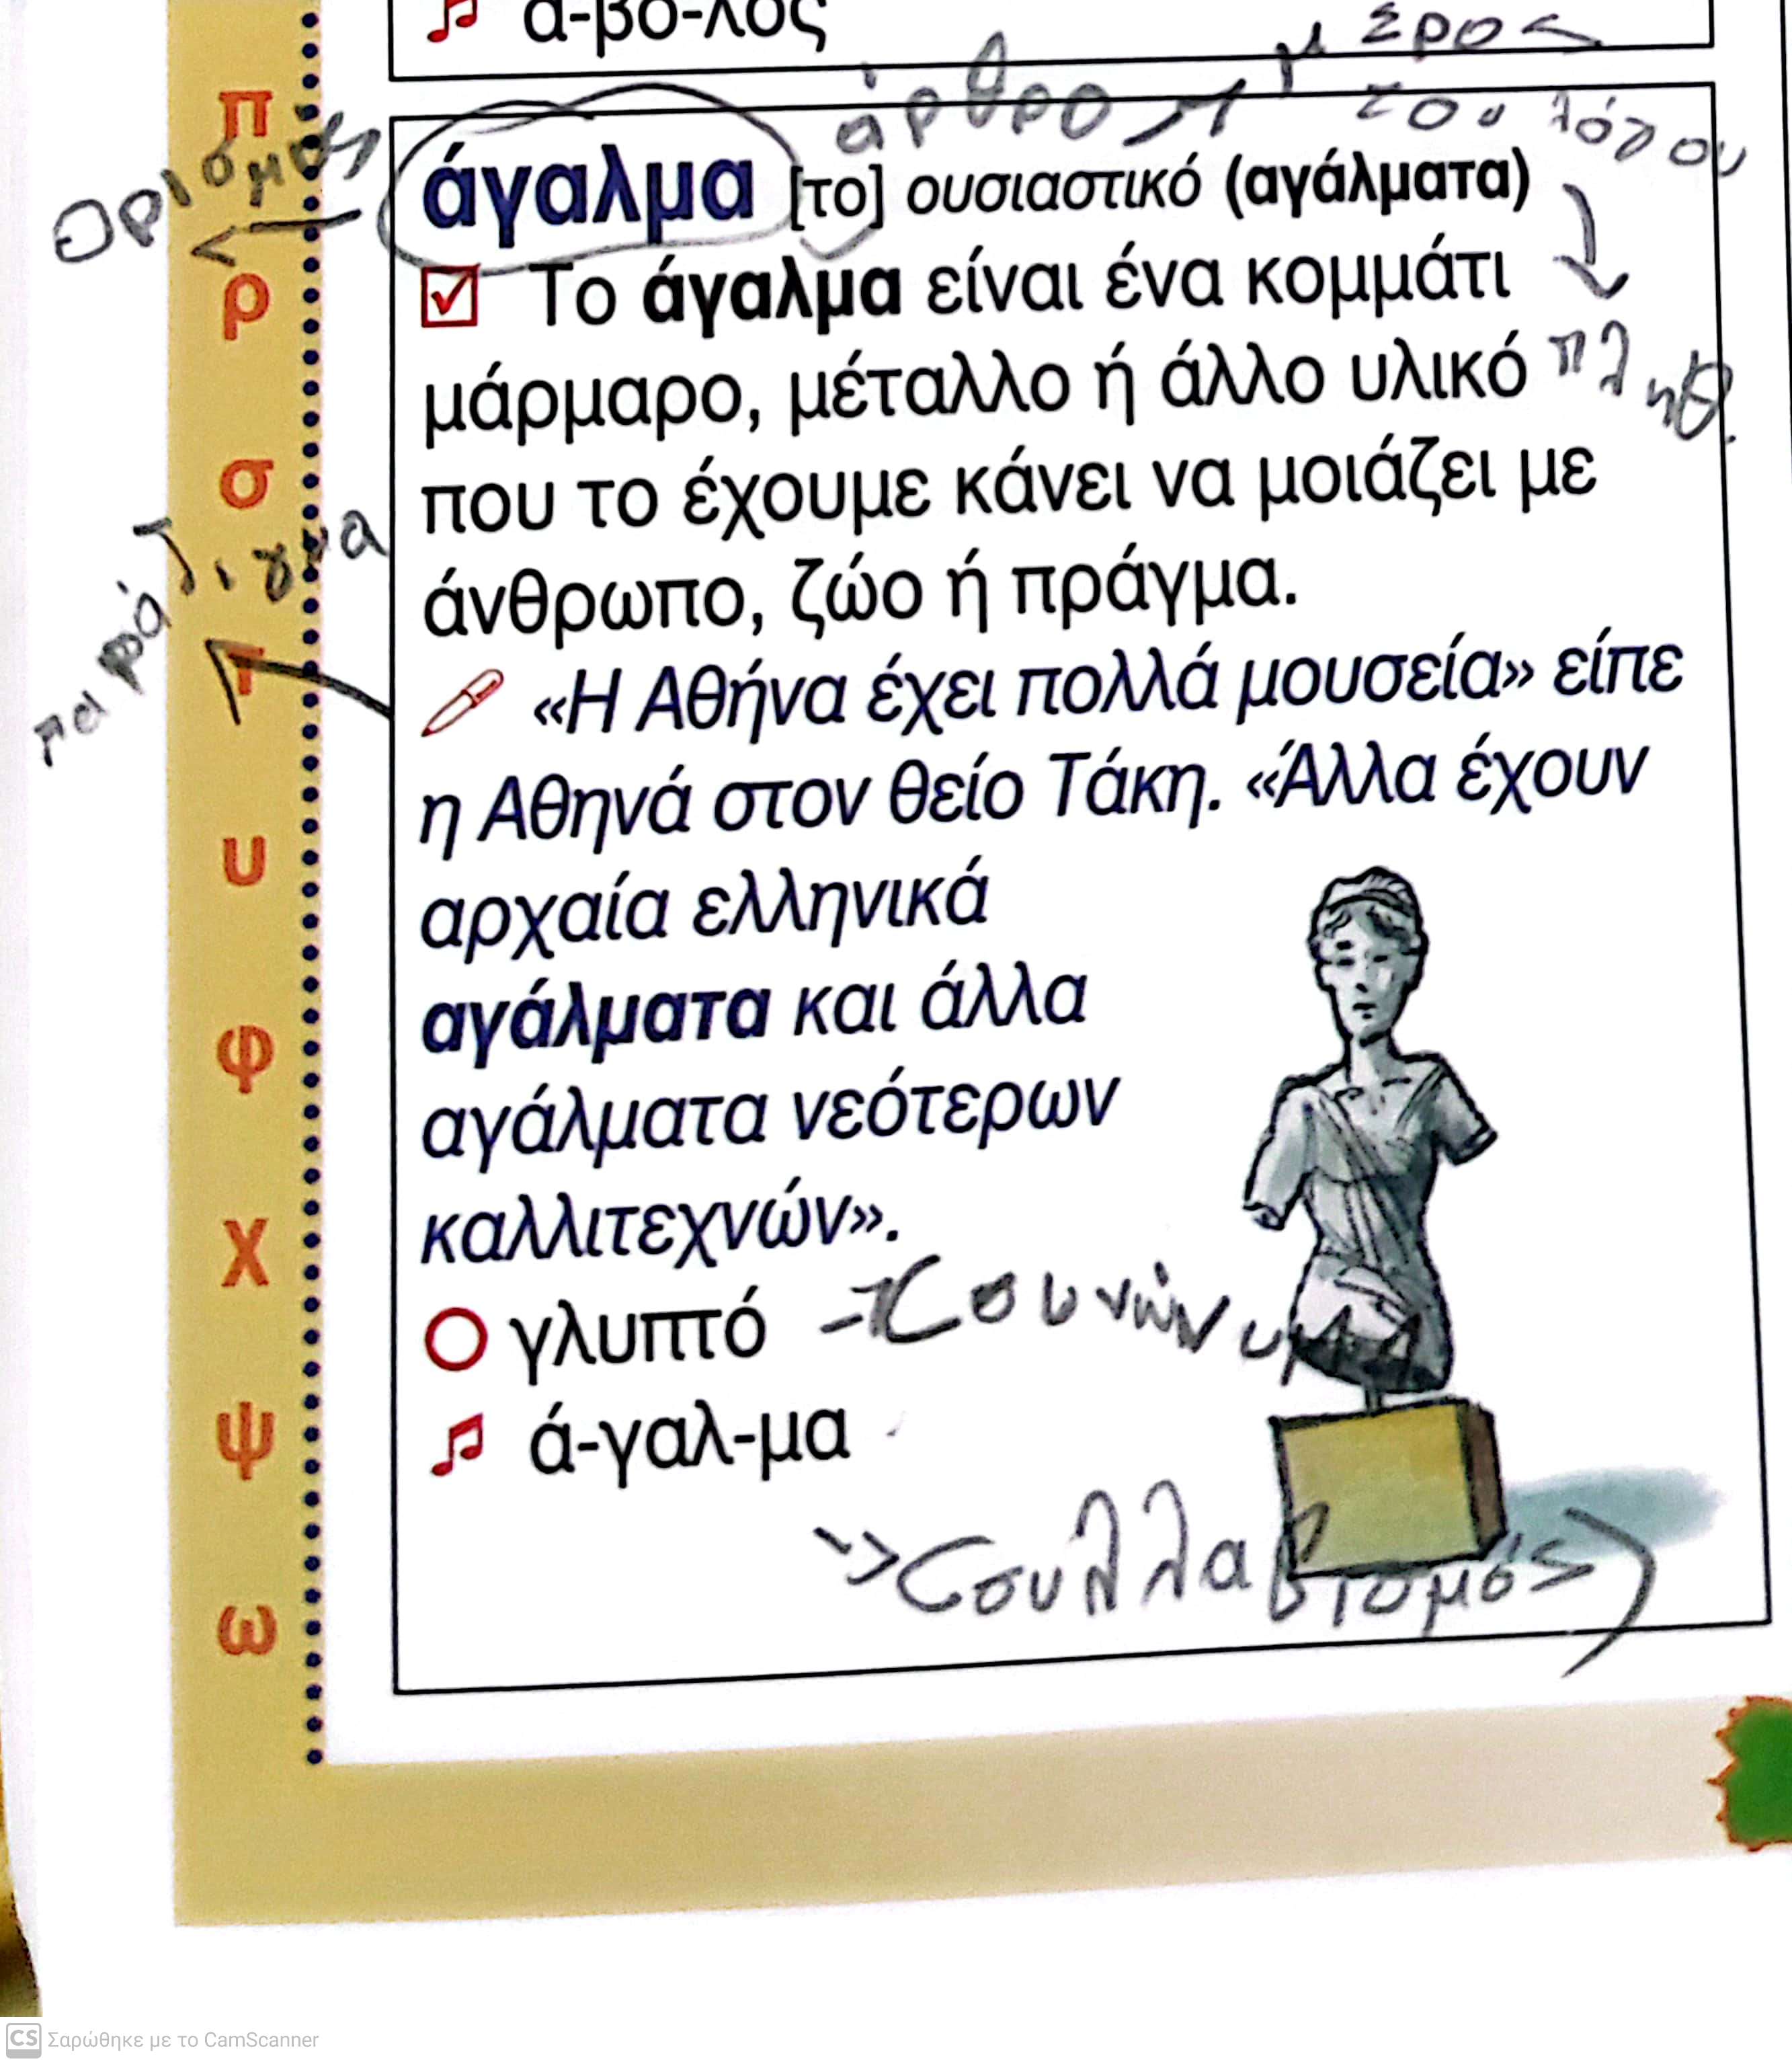 ά-βο-λος
άρθρο
μέρος
του λόγου
ορισμός
άγαλμα [το] ουσιαστικό (αγάλματα)
Το άγαλμα είναι ένα κομμάτι
μάρμαρο, μέταλλο ή άλλο υλικό
πληθ.
που το έχουμε κάνει να μοιάζει με
άνθρωπο, ζώο ή πράγμα.
παράδιγμα
«Η Αθήνα έχει πολλά μουσεία» είπε
η Αθηνά στον θείο Τάκη. «Άλλα έχουν
αρχαία ελληνικά
αγάλματα και άλλα
αγάλματα νεότερων
καλλιτεχνών».
γλυπτό
συνώνυμα
ά-γαλ-μα
(συλλαβισμός)
π
ρ
σ
τ
υ
φ
χ
ψ
ω
CS Σαρώθηκε με το CamScanner